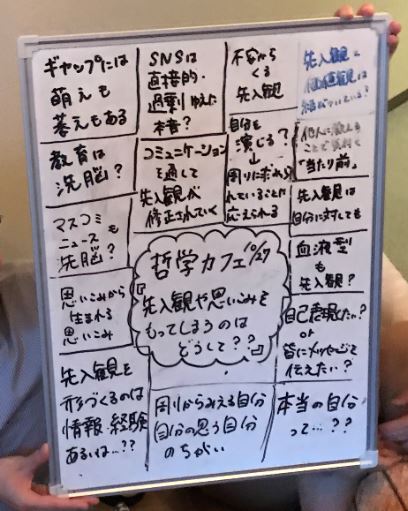 ギャップには
萌えも
萎えもある
SNSは
直接的・
過剰ゆえに
本音？
不安から
くる
先入観
先入観と
価値観は
結びついている？
教育は
洗脳？
コミュニケーション
を通して
先入観が
修正されていく
自分を
演じる？
周りに求めら
れていることに
応えられる
他人に
ことで気付く
「当たり前」
マスコミ
ニュースも
洗脳？
先入観は
自分に対しても
哲学カフェ10/27
『先入観や思いこみを
もってしまうのは
どうして？？』
血液型
も
先入観？
思いこみから
生まれる
思いこみ
自己表現したい？
or
皆にメッセージを
伝えたい？
先入観を
形づくるのは
情報・経験
あるいは…？？
周りからみえる自分
自分の思う自分
のちがい
本当の自分
って…？？